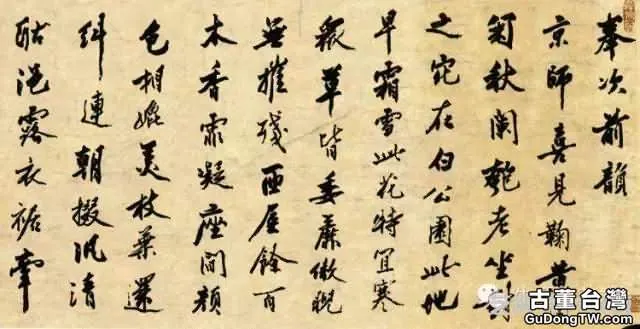 奉次前韻
京師喜見鞠黄
秋闌老坐對
之宛在白公園此地
早霜雪此花特宜寒
衆草皆委靡傲睨
無摧殘西餘百
木香霏凝座間顏
色相媲美枝葉還
糾連朝掇汎清
酤浥露衣裾牽
古董台灣
GuDongTW.com